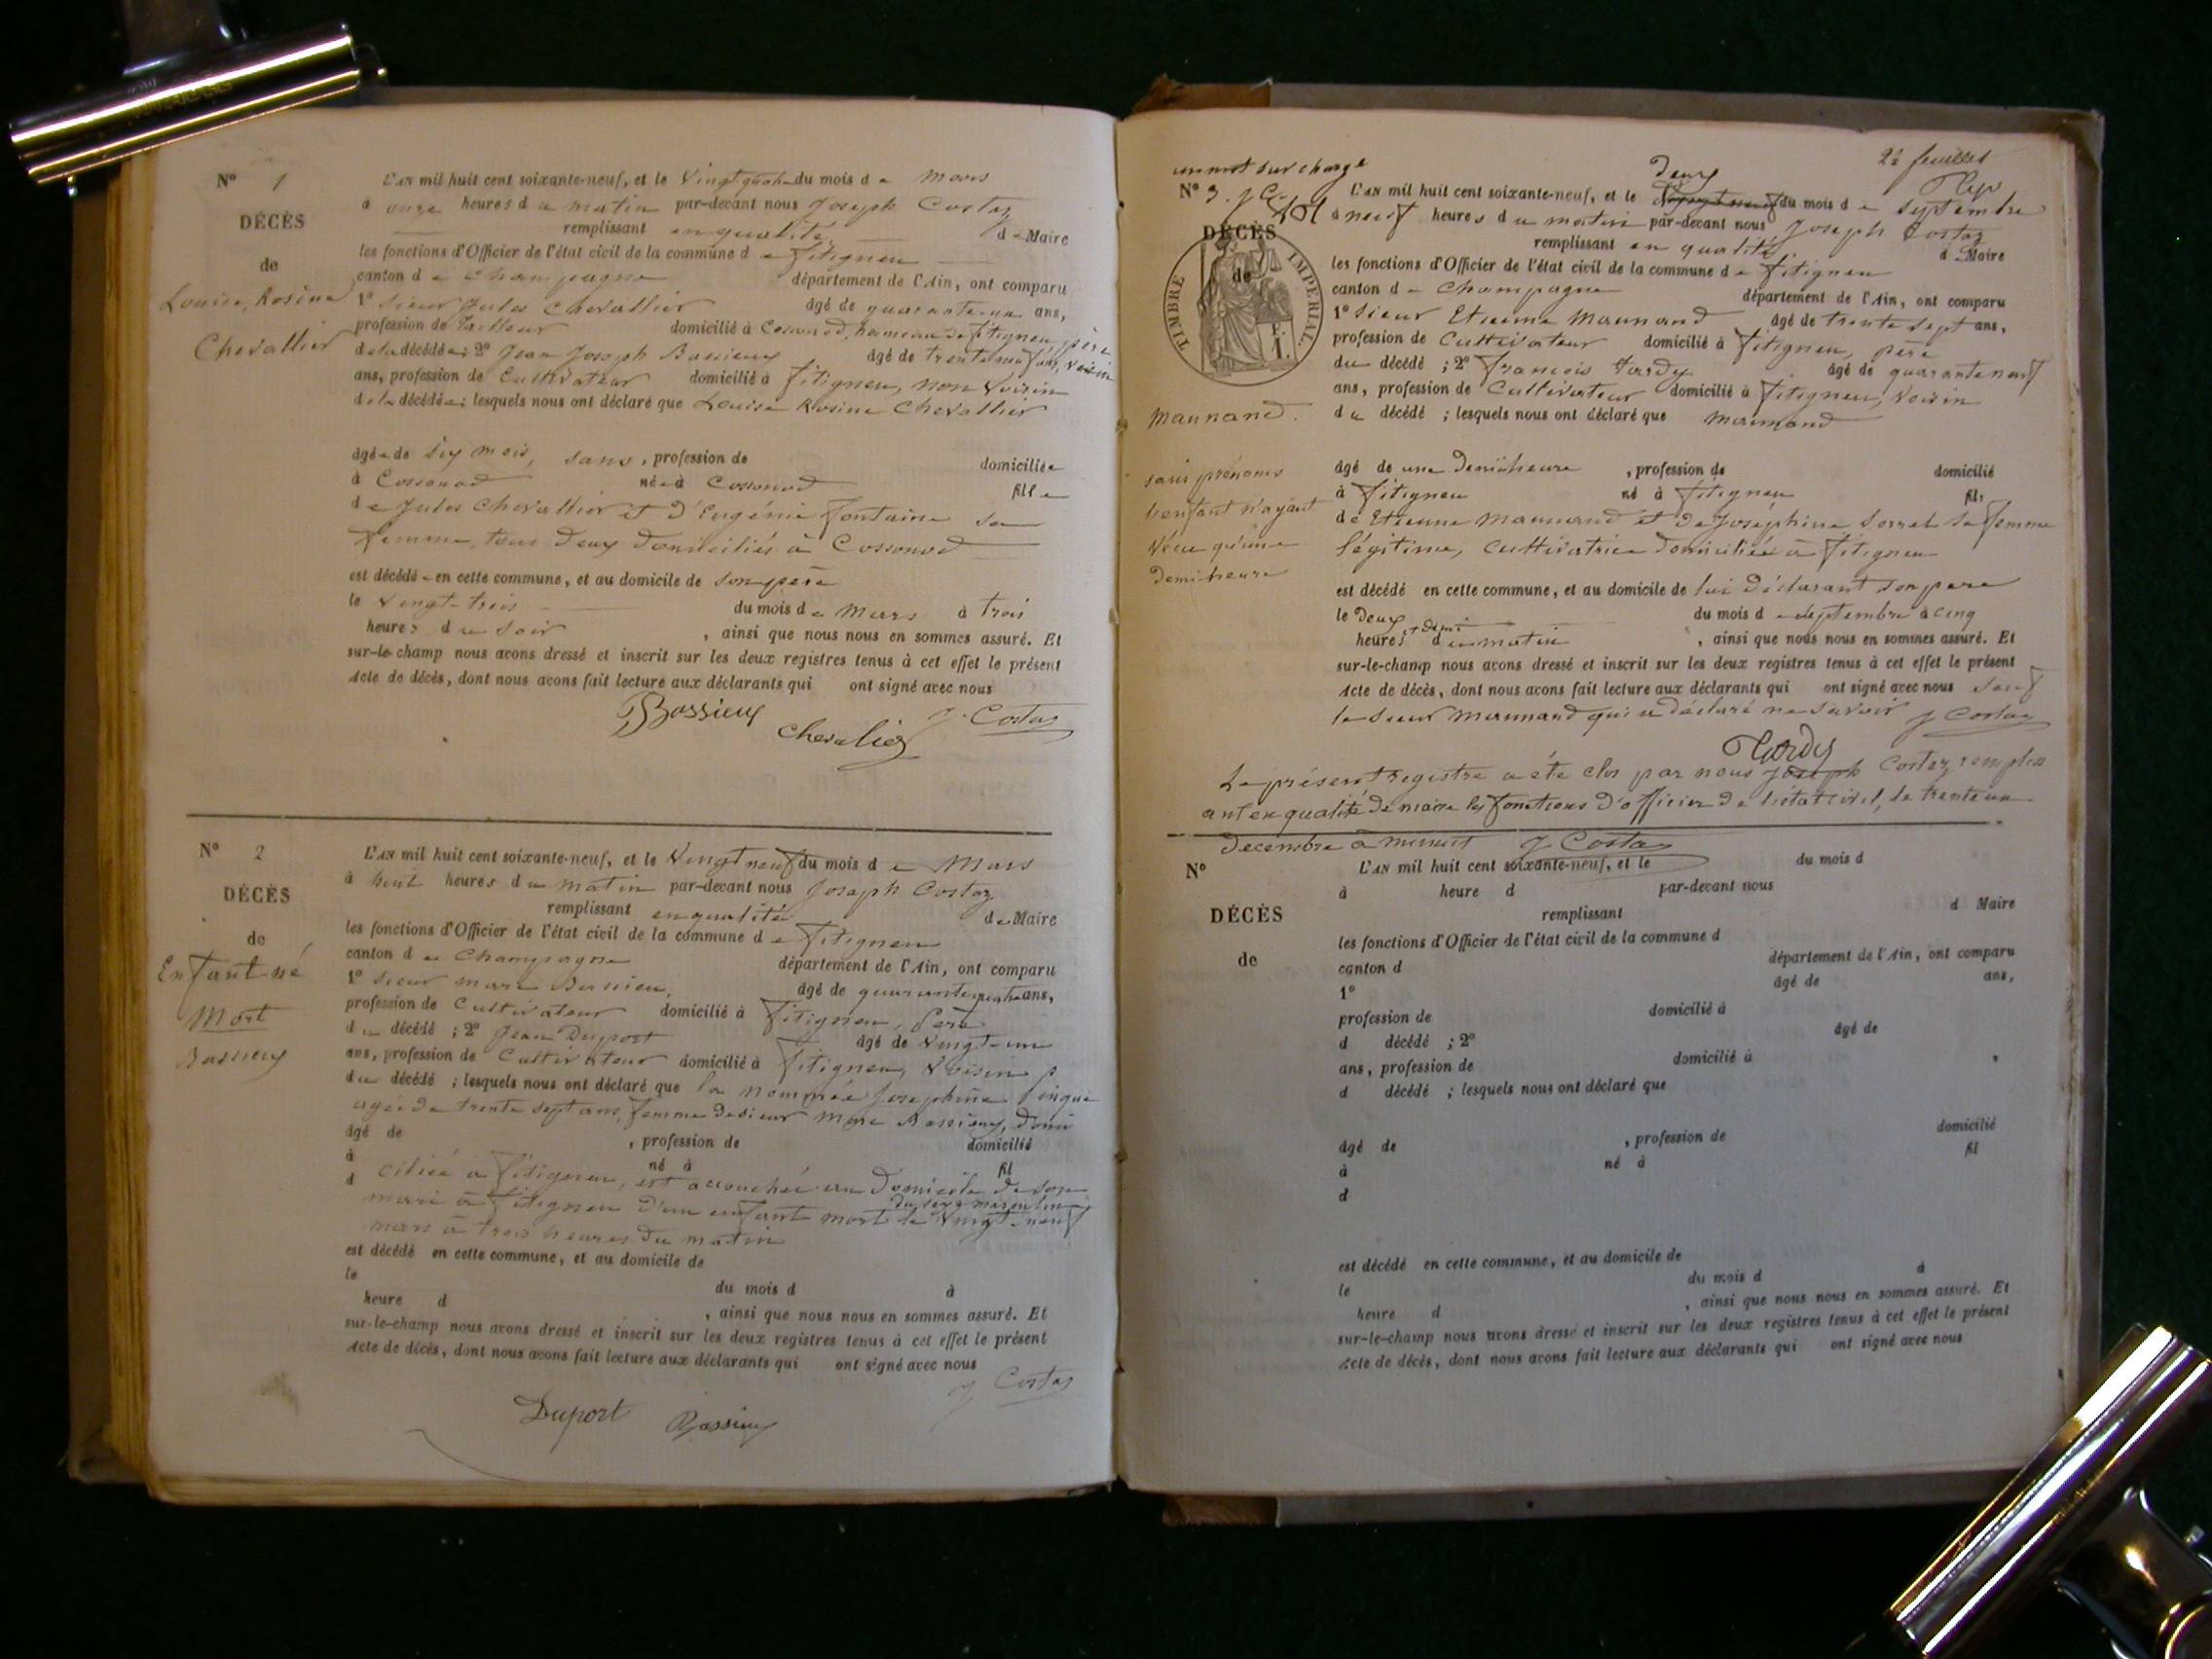 N° 1
DÉCÈS
de
Louise, Rosine
Chevallier
L'AN mil huit cent soixante-neuf, et le Vingt quatre du mois de mars
à onze heures du matin par-devant nous Joseph Costaz
remplissant en qualité de Maire
les fonctions d'Officier de l'état civil de la commune de fitignieu
canton de Champagne département de l'Ain, ont comparu
1° Sieur Jules Chevallier âgé de quarante-un ans,
profession de tailleur domicilié à Cossonod, hameau de fitignieu père
de la décédée; 2° Jean Joseph Bassieux âgé de trente neuf ans, voisin
ans, profession de Cultivateur domicilié à fitignieu, non Voisin
de la décédée; lesquels nous ont déclaré que Louise Rosine Chevallier
âgée de six mois, sans, profession de domiciliée
à Cossonod née à Cossonod fille
de Jules Chevallier et d'Eugénie fontaine sa
femme, tous deux domiciliés à Cossonod
est décédée en cette commune, et au domicile de son père
le Vingt-trois du mois de Mars à trois
heures du soir, ainsi que nous nous en sommes assuré. Et
sur-le-champ nous avons dressé et inscrit sur les deux registres tenus à cet effet le présent
Acte de décès, dont nous avons fait lecture aux déclarants qui ont signé avec nous
Bassieux Chevalier J. Costaz
N° 2
DÉCÈS
de
Enfant né
Mort
Bassieux
L'AN mil huit cent soixante-neuf, et le Vingt neuf du mois de Mars
à huit heures du matin par-devant nous Joseph Costaz
remplissant en qualité de Maire
les fonctions d'Officier de l'état civil de la commune de fitignieu
canton de Champagne département de l'Ain, ont comparu
1° Sieur marc Bassieu, âgé de quarante quatre ans,
profession de Cultivateur domicilié à fitignieu, Père
du décédé; 2° Jean Duport âgé de Vingt-un
ans, profession de Cultivateur domicilié à fitignieu, Voisin
du décédé; lesquels nous ont déclaré que la nommée Josephine
agée de trente sept ans, femme de sieur Marc Bassieux, domi
âgé de, profession de domicilié
à né à fil
d ciliée à fitignieu, est accouchée au domicile de son
du sexe masculin
mari à fitignieu d'un enfant mort le Vingt-neuf
mars à trois heures du matin
est décédé en cette commune, et au domicile de
le du mois d à
heure d, ainsi que nous nous en sommes assuré. Et
sur-le-champ nous avons dressé et inscrit sur les deux registres tenus à cet effet le présent
Acte de décès, dont nous avons fait lecture aux déclarants qui ont signé avec nous
J Costaz
Duport Bassieux
2e feuillet
un mot surchargé
N° 3. J C.
DÉCÈS
de
TIMBRE IMPÉRIAL
Maunand.
sans prénoms
l'enfant n'ayant
Vécu qu'une
demi heure
deux
L'AN mil huit cent soixante-neuf, et le Vingt neuf du mois de septembre
à neuf heures du matin par-devant nous Joseph Costaz
remplissant en qualité d Maire
les fonctions d'Officier de l'état civil de la commune de fitignieu
canton de Champagne département de l'Ain, ont comparu
1° Sieur Etienne Maunand âgé de trente sept ans,
profession de Cultivateur domicilié à fitignieu, père
du décédé; 2° francois tardy âgé de quarante neuf
ans, profession de Cultivateur domicilié à fitignieu, Voisin
du décédé; lesquels nous ont déclaré que Maunand
âgé de une demiheure, profession de domicilié
à fitignieu né à fitignieu fils
de Etienne Maunand et de Joséphine Sorrel sa femme
légitime, Cultivatrice domiciliée à fitignieu
est décédé en cette commune, et au domicile de lui déclarant son père
le deux du mois de septembre à cinq
heures et demi du matin, ainsi que nous nous en sommes assuré. Et
sur-le-champ nous avons dressé et inscrit sur les deux registres tenus à cet effet le présent
Acte de décès, dont nous avons fait lecture aux déclarants qui ont signé avec nous sauf
le sieur Maunand qui a déclaré ne savoir J Costaz
Tardy
Le présent registre a été clos par nous Joseph Costaz, rempliss
ant en qualité de maire les fonctions d'officier de l'état civil, le trente un
Decembre à minuit J Costaz
N°
DÉCÈS
de
L'AN mil huit cent soixante-neuf, et le du mois d
à heure d par-devant nous
remplissant d Maire
les fonctions d'Officier de l'état civil de la commune d
canton d département de l'Ain, ont comparu
1° âgé de ans,
profession de domicilié à
d décédé; 2° âgé de
ans, profession de domicilié à
d décédé; lesquels nous ont déclaré que
âgé de, profession de domicilié
à né à fil
d
est décédé en cette commune, et au domicile de
le du mois d à
heure d, ainsi que nous nous en sommes assuré. Et
sur-le-champ nous avons dressé et inscrit sur les deux registres tenus à cet effet le présent
Acte de décès, dont nous avons fait lecture aux déclarants qui ont signé avec nous